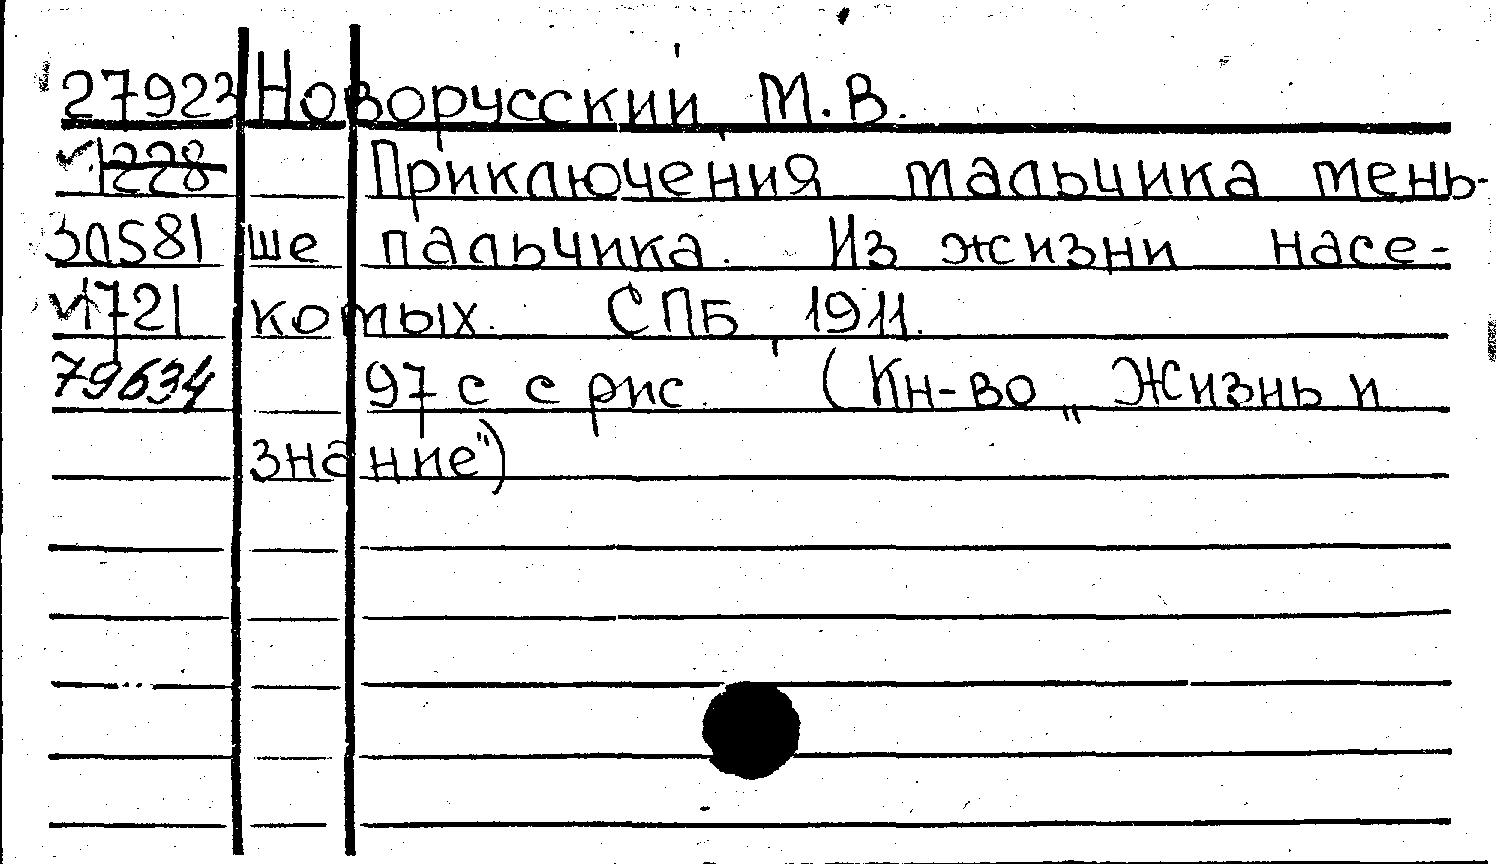 27923 Новорусский М.В.
1228 Приключения мальчика мень-
30581 ше пальчика. Из жизни насе-
1721 комых. СПБ 1911.
79634 97 с с рис. (Кн-во „Жизнь и
знание")